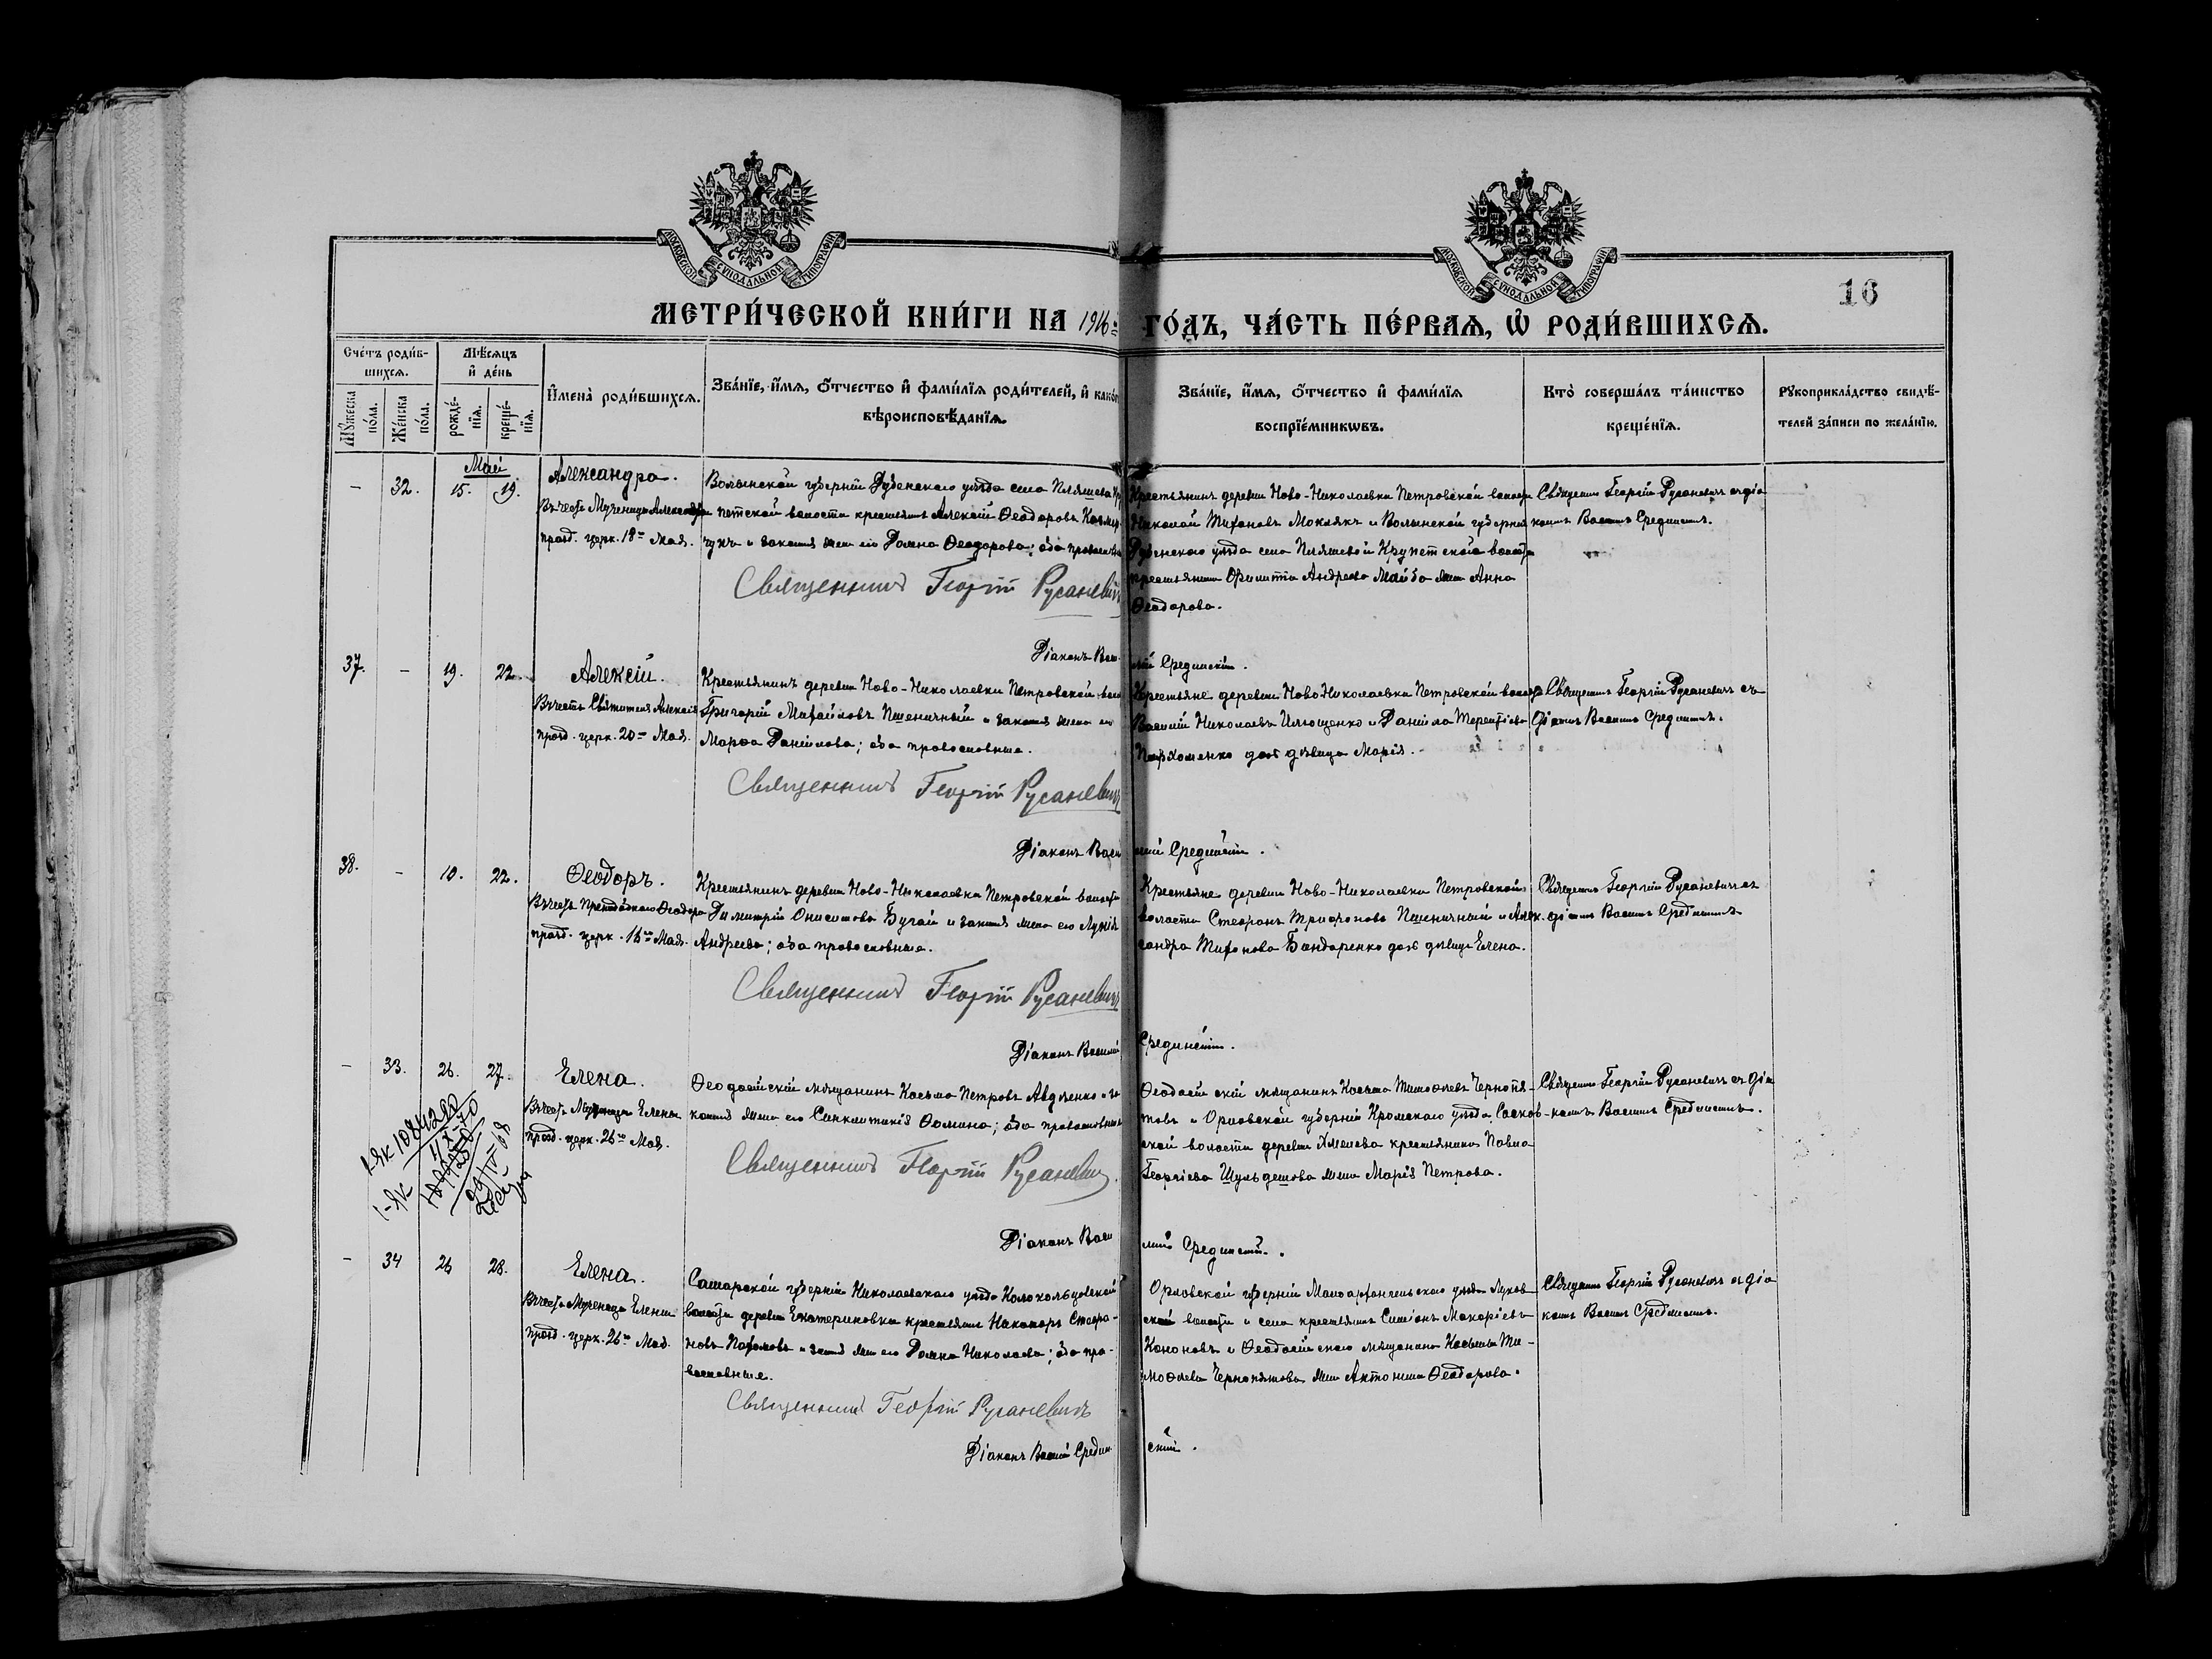 МОСКОВСКОЙ СУНОДАЛЬНОЙ ТИПОГРАФІИ
МОСКОВСКОЙ СУНОДАЛЬНОЙ ТИПОГРАФІИ
16
МЕТРИ́ЧЕСКОЙ КНИ́ГИ НА 1916 ГО́ДЪ, ЧА́СТЬ ПЕ́РВАѦ, Ѿ РОДИ́ВШИХСѦ.
Сче́тъ роди́в-
шихсѧ.
Мꙋ́жеска по́ла.
Же́нска по́ла.
Мѣ́сяцъ
и҆ де́нь
рожде́-
нїѧ.
креще́-
нїѧ.
И҆мена̀ роди́вшихсѧ.
Зва́нїе, и҆́мѧ, ѻ҆́тчество и҆ фами́лїѧ роди́телей, и҆ како́гѡ
вѣроисповѣ́данїѧ.
Зва́нїе, и҆́мѧ, ѻ҆́тчество и҆ фами́лїѧ
воспрїе́мникѡвъ.
Кто̀ соверша́лъ та́инство
креще́нїѧ.
Рꙋкоприкла́дство свидѣ́-
телей за́писи по жела́нїю.
Май
- 32. 15. 19.
Александра.
Въ честь Мученицы Александры
празд. церк. 18го Мая.
Волынской губерніи Дубенскаго уѣзда села Пляшева Кру-
петской волости крестьянинъ Алексій Ѳеодоровъ
и законная жена его Домна Ѳеодорова; оба православные
Священникъ Георгій Русаневичъ
Діаконъ Василій Срединскій.
Крестьянинъ деревни Ново-Николаевки Петровской волости
Николай Тихоновъ Моклякъ и Волынской губерніи
Дубенскаго уѣзда села Пляшевой Крупетской волости
крестьянина Филиппа Андреева Майба жена Анна
Ѳеодорова.
Священникъ Георгій Русаневичъ съ діа-
кономъ Василіемъ Срединскимъ.
37. - 19. 22.
Алексій.
Въ честь Святителя Алексія
празд. церк. 20го Мая.
Крестьянинъ деревни Ново-Николаевки Петровской волости
Григорій Михайловъ Пшеничный и законная жена его
Марѳа Даніилова; оба православные.
Священникъ Георгій Русаневичъ
Діаконъ Василій Срединскій.
Крестьяне деревни Ново Николаевки Петровской волости
Василій Николаевъ Ильющенко и Даніила Терентіева
Пархоменко дочь дѣвица Марія.
Священникъ Георгій Русаневичъ съ
діакономъ Василіемъ Срединскимъ.
38. - 10. 22.
Ѳеодоръ.
Въ честь Преподобнаго Ѳеодора
празд. церк. 16го Мая.
Крестьянинъ деревни Ново-Николаевки Петровской волости
Димитрій Онисимовъ Бугай и законная жена его
Андреева; оба православные.
Священникъ Георгій Русаневичъ
Діаконъ Василій Срединскій.
Крестьяне деревни Ново-Николаевки Петровской
волости Стефанъ Трифоновъ Пшеничный и Алек-
сандра Тихонова Бондаренко дочь дѣвица Елена.
Священникъ Георгій Русаневичъ съ
діакономъ Василіемъ Срединскимъ
- 33. 26. 27.
Елена.
Въ честь Мученицы Елены
празд. церк. 26го Мая.
Ѳеодосійскій мѣщанинъ Косьма Петровъ Авдѣенко и за-
конная жена его Синклитикія Ѳомина; оба православные
Священникъ Георгій Русаневичъ.
Діаконъ Василій Срединскій.
Ѳеодосійскій мѣщанинъ Косьма Тимоѳеевъ Чернопя-
товъ и Орловской губерніи Кромскаго уѣзда Сосков-
ской волости деревни Хмелева крестьянина Павла
Георгіева Шульдешова жена Марія Петрова.
Священникъ Георгій Русаневичъ съ діа-
кономъ Василіемъ Срединскимъ.
- 34 26 28.
Елена.
Въ честь Мученицы Елены
празд. церк. 26го Мая.
Самарской губерніи Николаевскаго уѣзда Колокольцовской
волости деревни Екатериновки крестьянинъ Никаноръ Стефа-
новъ Пахомовъ и законная жена его Домна Николаева; оба пра-
вославные.
Священникъ Георгій Русаневичъ
Діаконъ Василій Срединскій.
Орловской губерніи Малоархангельскаго уѣзда
волости и села крестьянинъ Симеонъ Макаріевъ
Кононовъ и Ѳеодосійскаго мѣщанина Косьмы Ти-
моѳеева Чернопятова жена Антонина Ѳеодорова.
Священникъ Георгій Русаневичъ съ діа-
кономъ Василіемъ Срединскимъ.